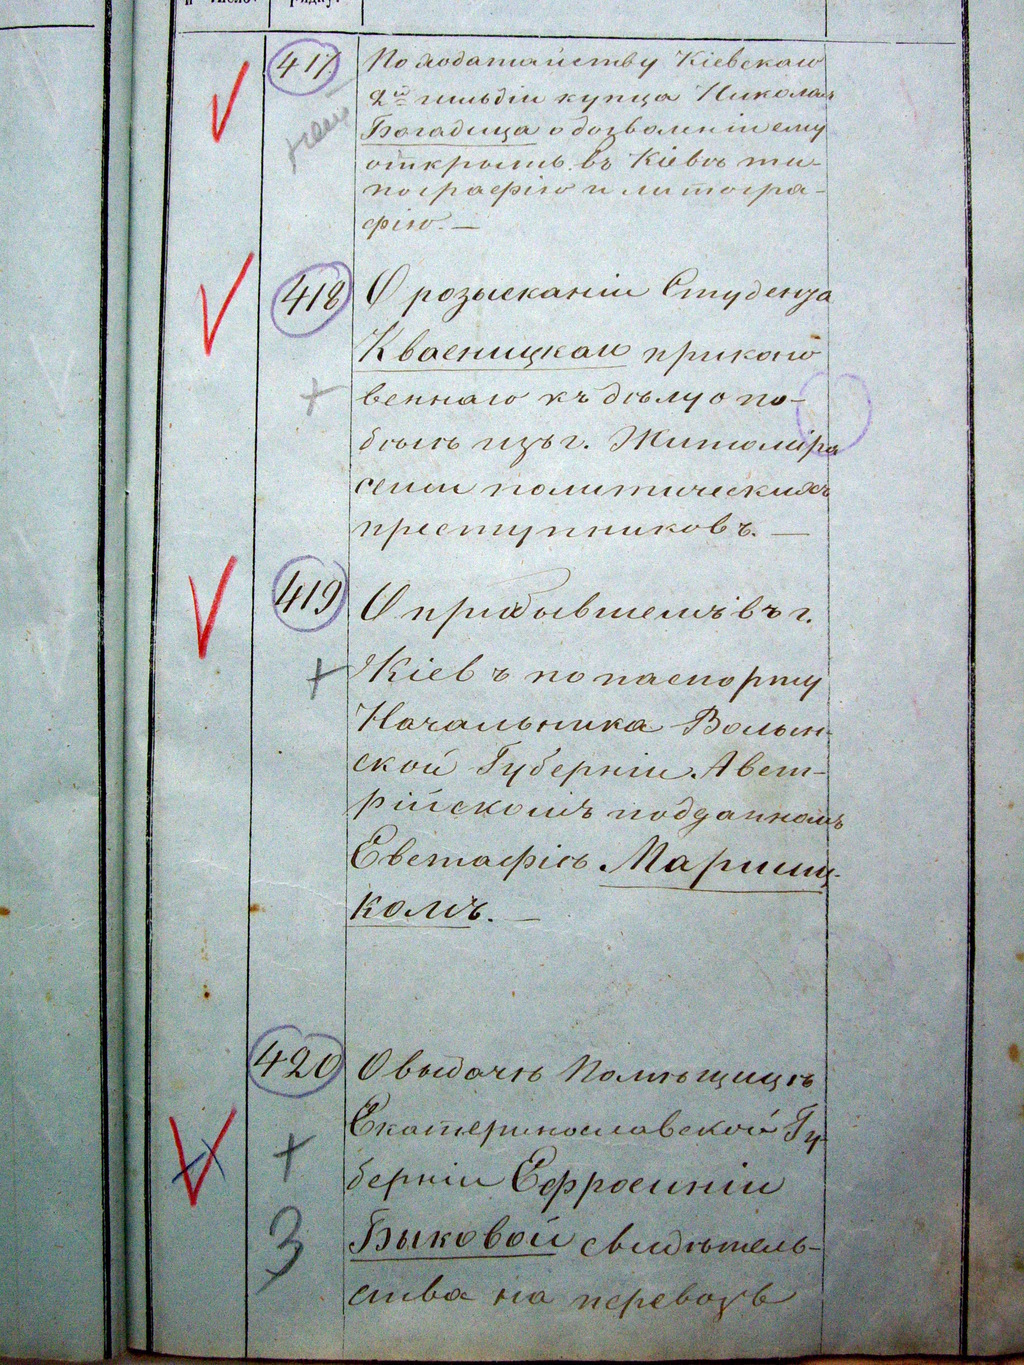 417.
По ходатайству Кіевскаго
2й гильдіи купца Николая
Богадица о дозволеніи ему
открыть въ Кіевѣ ти-
пографію и литогра-
фію. —
418
О розысканіи Студента
Квасницкаго прикосно
веннаго къ дѣлу о по-
бѣгѣ изъ г. Житоміра
семи политическихъ
преступниковъ. —
419
О прибывшемъ въ г.
Кіевъ по паспорту
Начальника Волын-
ской Губерніи Авст-
рійскомъ подданномъ
Евстафіѣ
комъ. —
420
О выдачѣ Помѣщицѣ
Екатеринославской Гу-
берніи Ефросиніи
Быковой свидѣтель-
ства на перевозъ
3